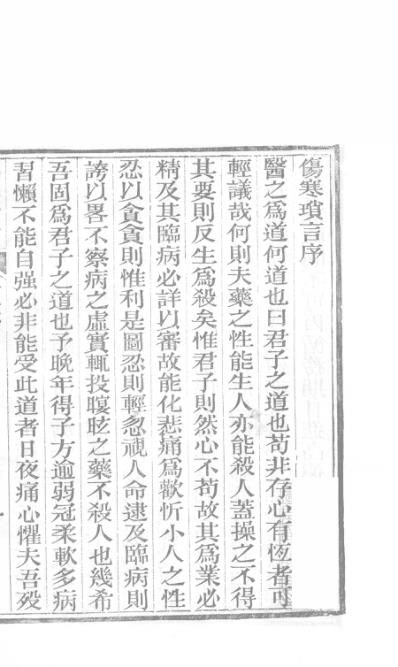 傷寒瑣言序
醫之爲道何道也曰君子之道也苟非存心有恆者可
輕議哉何則夫藥之性能生人亦能殺人蓋操之不得
其要則反生爲殺矣惟君子則然心不苟故其爲業必
精及其臨病必詳以審故能化悲痛爲歡忻小人之性
忍以貪貪則惟利是圖忍則輕忽視人命逮及臨病則
誇以畧不察病之虛實輒投瞑眩之藥不殺人也幾希
吾固爲君子之道也予晚年得子方逾弱冠柔軟多病
習懶不能自强必非能受此道者日夜痛心懼夫吾殁